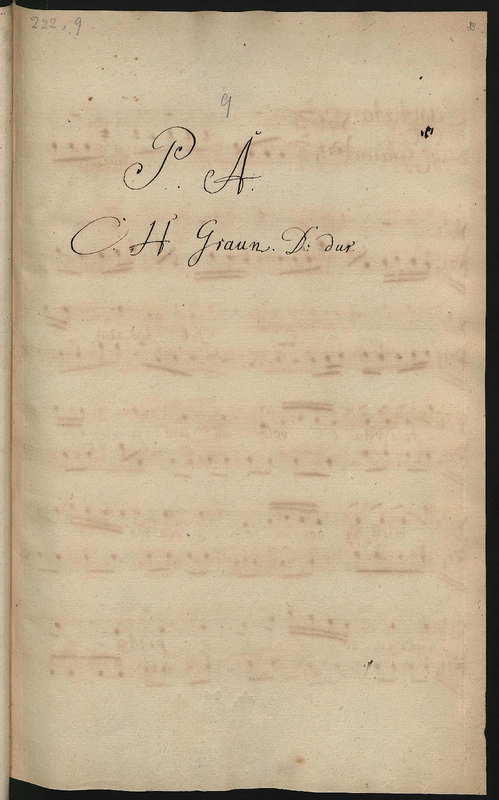 222, 9
9
P. A.
C. H. Graun. D: dur.